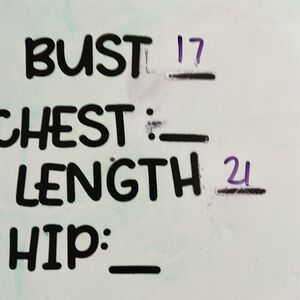 BUST 17
CHEST:__
LENGTH 21
HIP:__